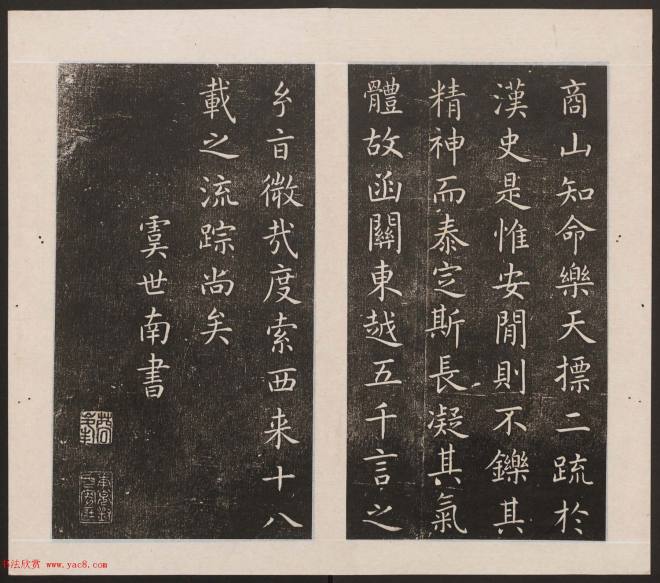 商山知命樂天標二疏於
漢史是惟安閒則不鑠其
精神而泰定斯長凝其氣
體故函關東越五千言之
兮盲微哉度索西来十八
載之流踪尚矣
虞世南書
书法欣赏 www.yac8.com